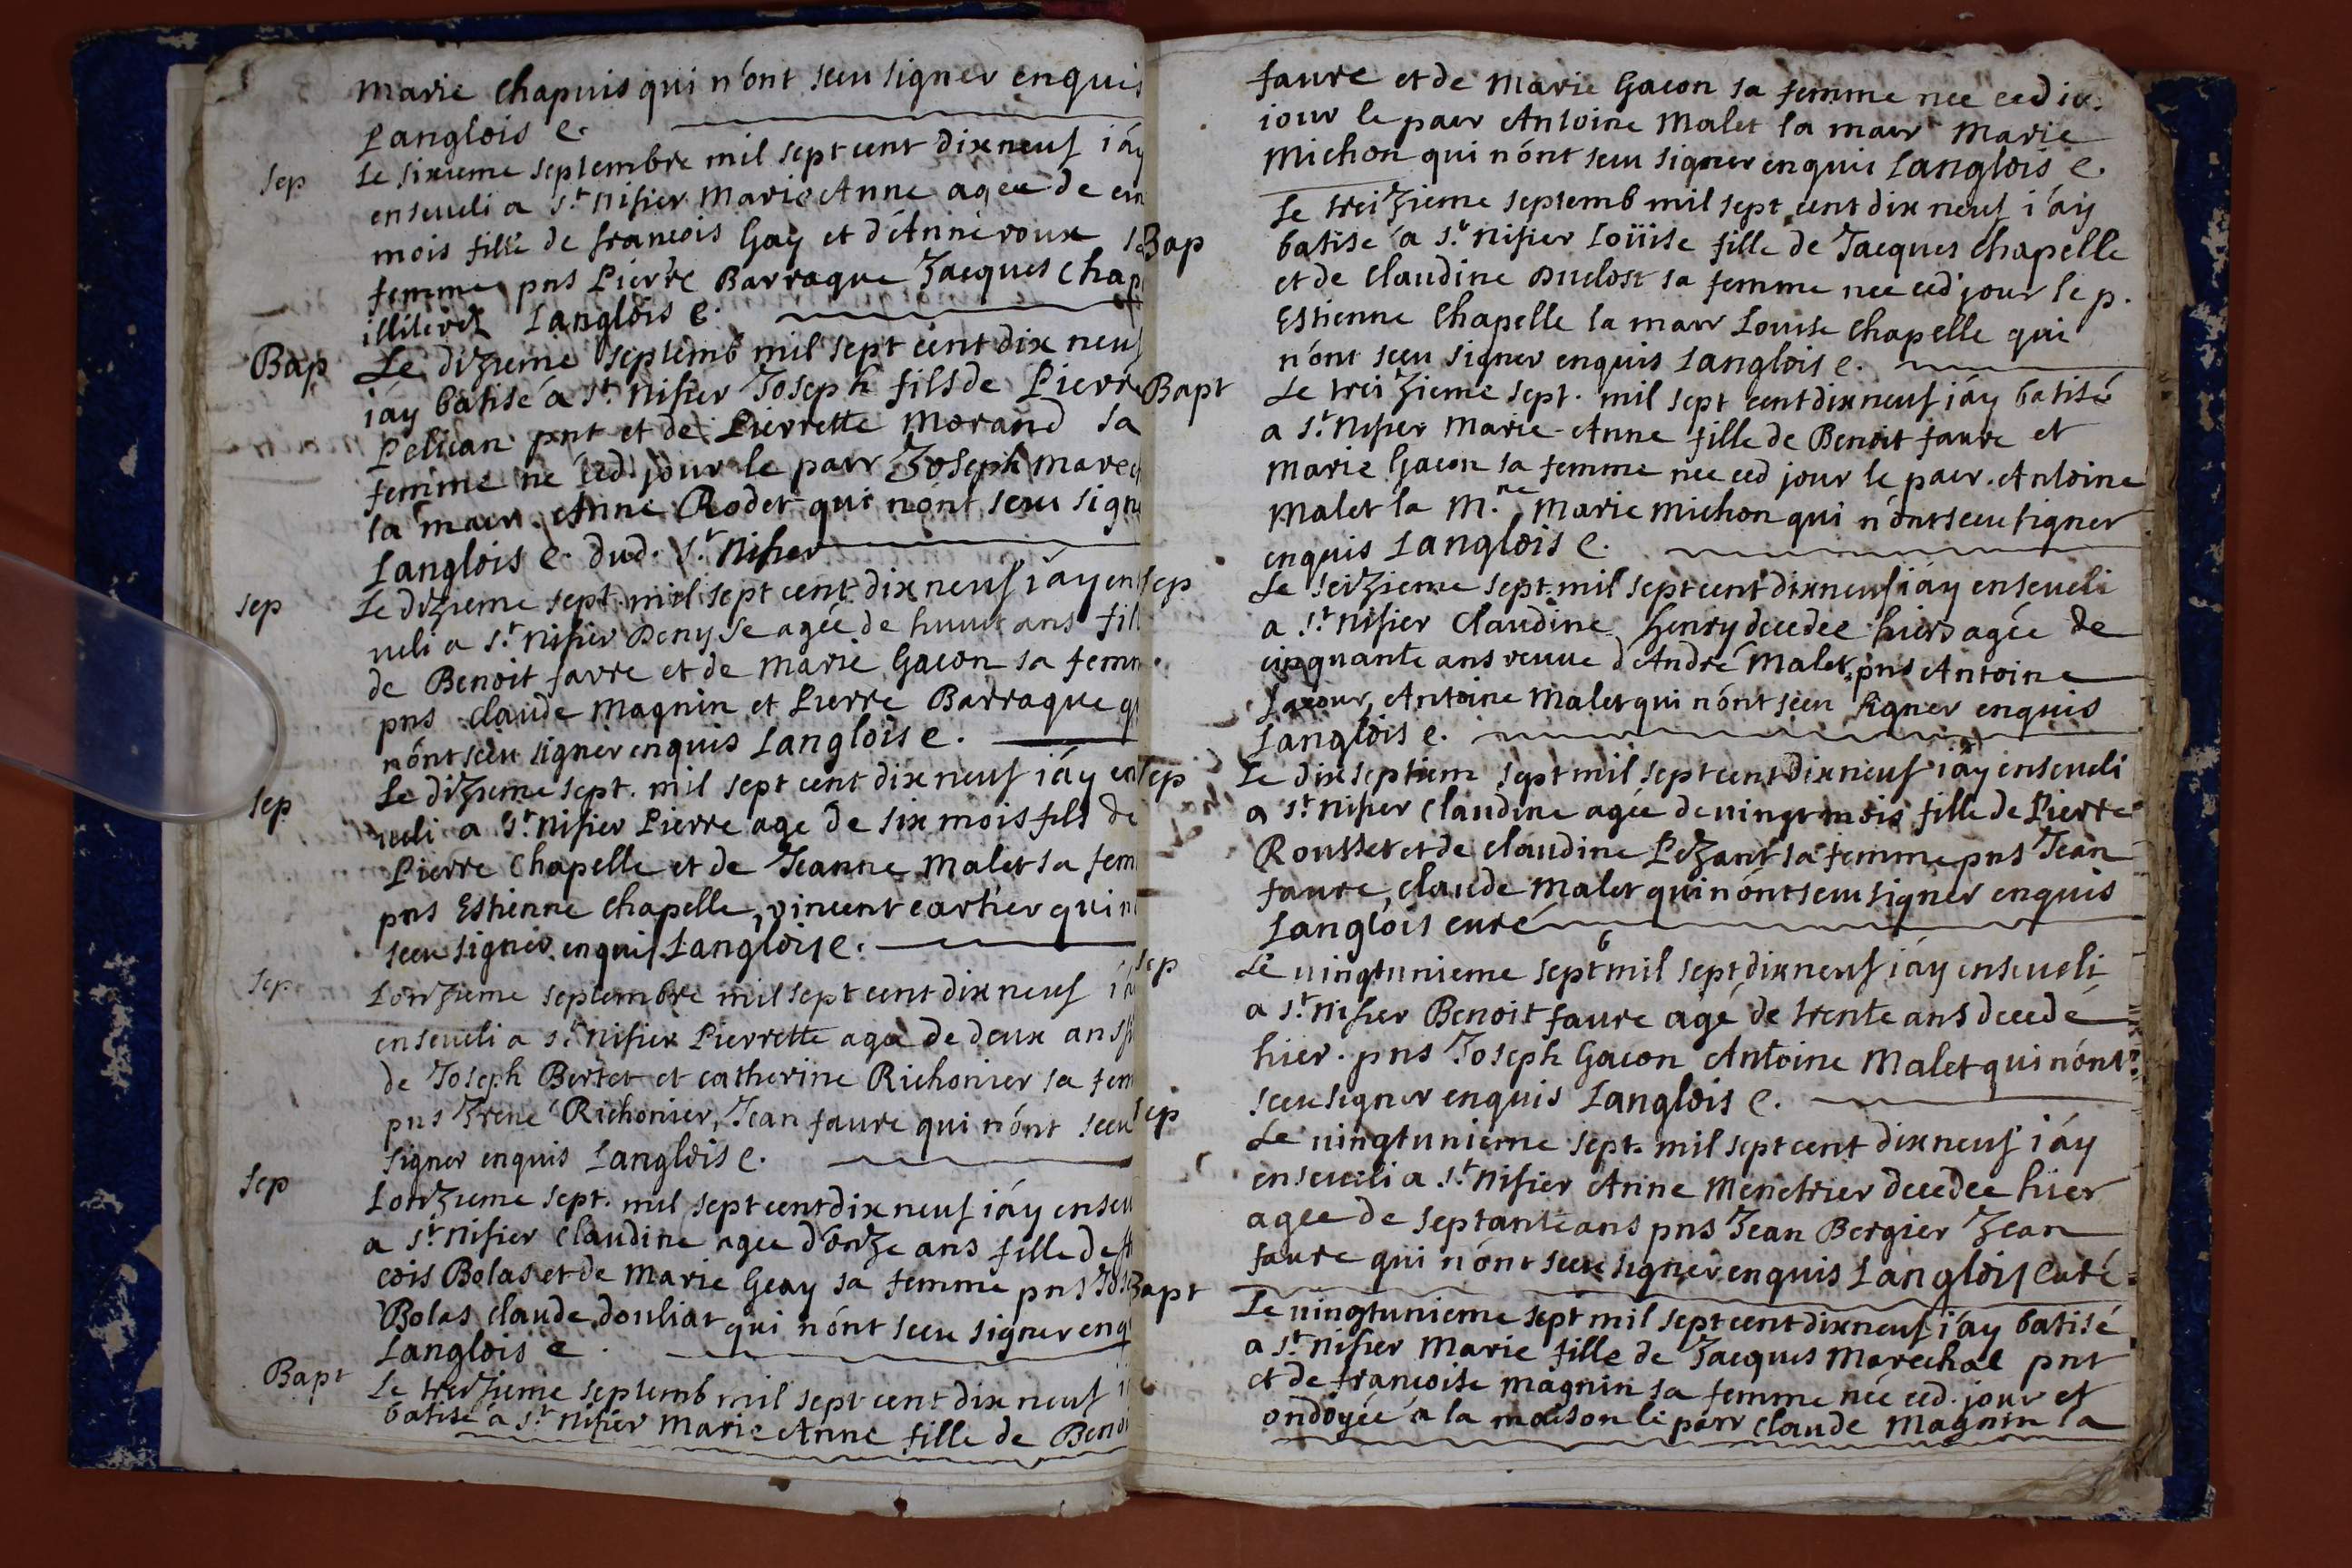 Marie Chapuis qui n'ont sceu signer enquis
Langlois C.
Sep Le sixieme septembre mil sept cent dix neuf i'ay
enseveli a St. Nisier Marie Anne agee de
mois fille de francois Gay et d'Anne roux
femme pns Pierre Barraque Jacques Chap
illiterez Langlois C.
Bap Le dizieme septemb mil sept cent dix neuf
i'ay batisé a St. Nisier Joseph fils de Pierre
Pelican pnt et de Pierrette Morand sa
femme né ced. jour le parr Joseph marec
la marr. Anne Rodet qui n'ont sceu sign
Langlois C. dud. St. Nisier
Sep Le dizieme sept. mil sept cent dix neuf i'ay en
veli a St. Nisier Denyse agée de huict ans fil
de Benoit favre et de Marie Gacon sa femm
pns Claude Magnin et Pierre Barraque q
n'ont sceu signer enquis Langlois C.
Sep Le dizieme sept. mil sept cent dix neuf i'ay en
veli a St. Nisier Pierre age de six mois fils de
Pierre Chapelle et de Jeanne Malet sa fem
pns Estienne Chapelle, vincent cartier qui n
sceu signer enquis Langlois C.
Sep L'onzieme septembre mil sept cent dix neuf i'a
enseveli a St. Nisier Pierrette agée de deux ans
de Joseph Bertet et catherine Richonier sa fem
pns Irené Richonier, Jean faure qui n'ont sceu
signer enquis Langlois C.
Sep L'onzieme sept. mil sept cent dix neuf i'ay ensev
a St. Nisier Claudine agee d'onze ans fille de
cois Bolas et de Marie Geay sa femme pns Jos
Bolas Claude douliat qui n'ont sceu signer enq
Langlois C.
Bapt Le treizieme septemb mil sept cent dix neuf
batisé a St. Nisier Marie Anne fille de Benoi
faure et de Marie Gacon sa femme nee ced
iour le parr Antoine Malet la marr Marie
Michon qui n'ont sceu signer enquis Langlois C.
Bap Le treizieme septemb mil sept cent dix neuf i'ay
batisé a St. Nisier Loüise fille de Jacques Chapelle
et de Claudine Duclost sa femme nee ced jour le p.
Estienne Chapelle la marr Louise Chapelle qui
n'ont sceu signer enquis Langlois C.
Bapt Le treizieme sept. mil sept cent dix neuf i'ay batisé
a St. Nisier Marie-Anne fille de Benoit faure et
Marie Gacon sa femme nee ced jour le parr. Antoine
Malet la M.ne Marie Michon qui n'ont sceu signer
enquis Langlois C.
Sep Le seizieme sept. mil sept cent dix neuf i'ay enseveli
a St. Nisier Claudine Henry decedee hier agée de
cinquante ans veuve d'André Malet, pns Antoine
Antoine Malet qui n'ont sceu signer enquis
Langlois C.
Sep Le dix septiem sept mil sept cent dix neuf i'ay enseveli
a St. Nisier Claudine agée de vingt mois fille de Pierre
Rousset et de Claudine Pezant sa femme pns Jean
faure, Claude Malet qui n'ont sceu signer enquis
Langlois curé
Sep Le vingtunieme septb mil sept dix neuf i'ay enseveli
a St. Nisier Benoit faure agé de trente ans decedé
hier. pns Joseph Gacon Antoine Malet qui n'ont
sceu signer enquis Langlois C.
Sep Le vingtunieme sept. mil sept cent dix neuf i'ay
enseveli a St. Nisier Anne Menetrier decedee hier
agee de septante ans pns Jean Bergier Jean
faure qui n'ont sceu signer enquis Langlois Curé.
Bapt Le vingtunieme sept mil sept cent dix neuf i'ay batisé
a St. Nisier Marie fille de Jacques Marechal pnt
et de francoise Magnin sa femme née ced. jour et
ondoyée a la maison le parr Claude Magnin la